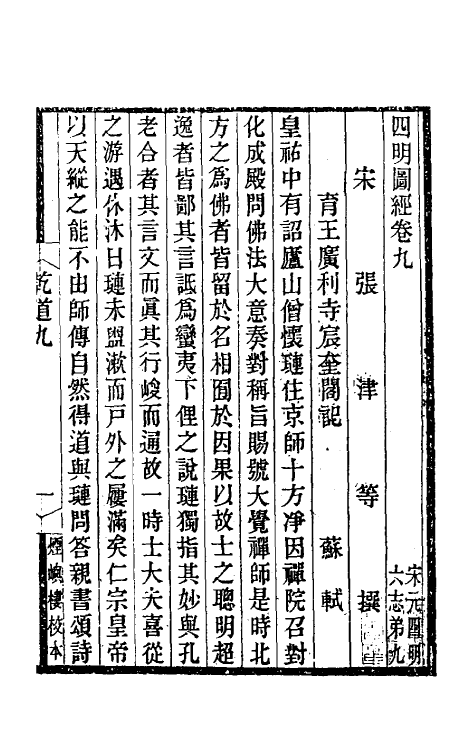 四明圖經卷九
宋元四明
六志弟九
宋 張 津 等 撰
育王廣利寺宸奎閣記 蘇軾
皇祐中有詔廬山僧懷璉住京師十方淨因禪院召對
化成殿問佛法大意奏對稱旨賜號大覺禪師是時北
方之爲佛者皆留於名相囿於因果以故士之聰明超
逸者皆鄙其言詆爲蠻夷下俚之說璉獨指其妙與孔
老合者其言文而眞其行峻而通故一時士大夫喜從
之游遇休沐日璉未盥漱而戶外之屨滿矣仁宗皇帝
以天縱之能不由師傳自然得道與璉問答親書頌詩
乾道九
一
煙嶼樓校本